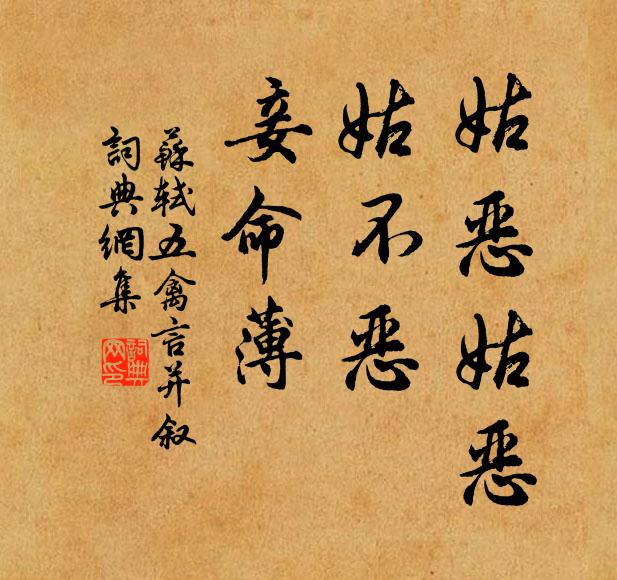 姑恶姑恶
姑不恶
妾命薄
蘇軾五禽言并叙
詞典網集
詞典
网印